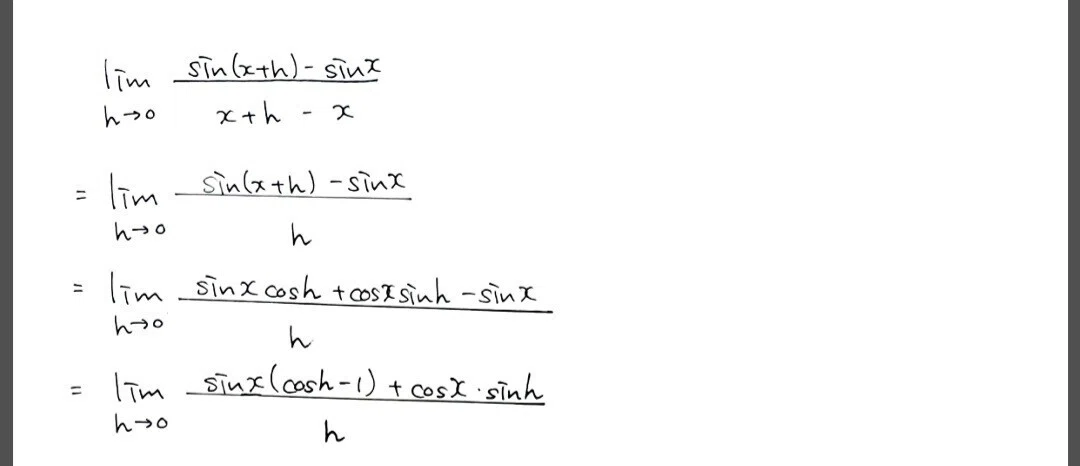 lim sin(x+h) - sinx
h→0 x+h - x
= lim sin(x+h) - sinx
h→0 h
= lim sinx cosh + cosx sinh - sinx
h→0 h
= lim sinx(cosh-1) + cosx · sinh
h→0 h